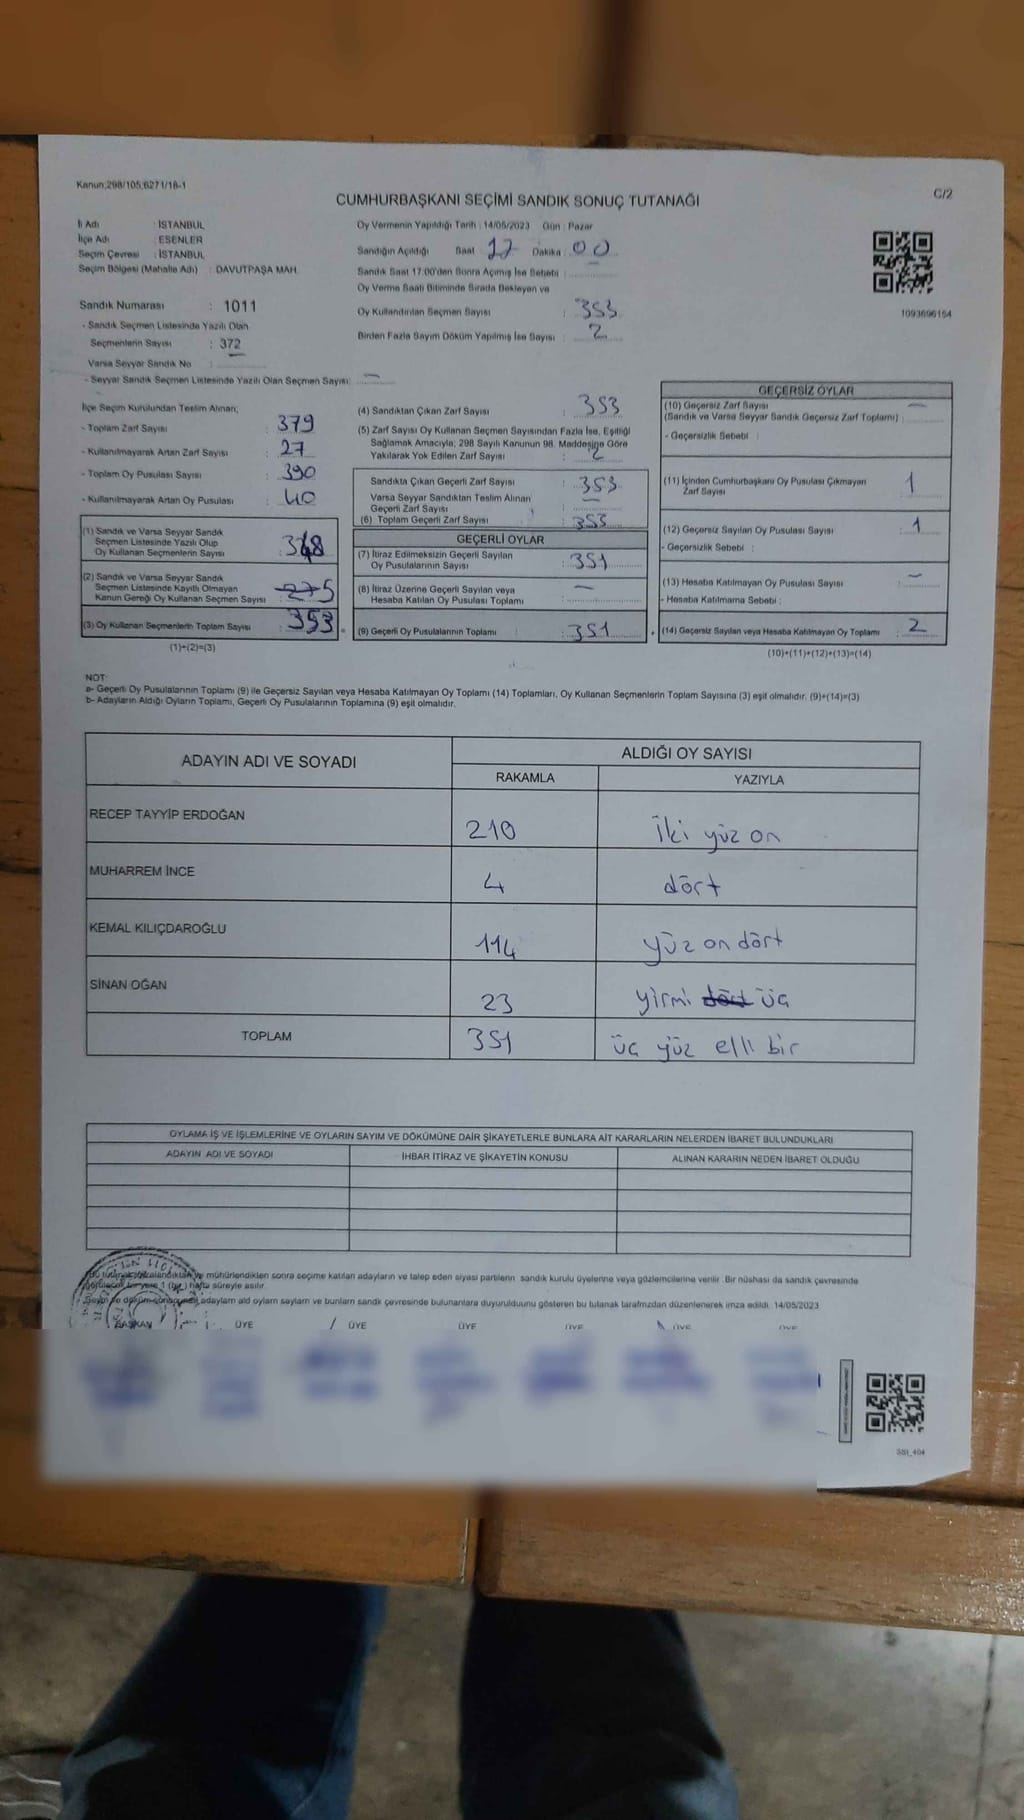 Kanun;298/105;6271/16-1
C/2
CUMHURBAŞKANI SEÇİMİ SANDIK SONUÇ TUTANAĞI
İl Adı : İSTANBUL
İlçe Adı : ESENLER
Seçim Çevresi : İSTANBUL
Seçim Bölgesi (Mahalle Adı) : DAVUTPAŞA MAH.
Oy Vermenin Yapıldığı Tarih : 14/05/2023 Gün : Pazar
Sandığın Açıldığı Saat 17 Dakika : 00
Sandık Saat 17.00'den Sonra Açımış İse Sebebi :
Oy Verme Saati Bitiminde Sırada Bekleyen ve
Oy Kullandırılan Seçmen Sayısı : 353
Birden Fazla Sayım Döküm Yapılmış İse Sayısı : 2
1093696154
Sandık Numarası : 1011
- Sandık Seçmen Listesinde Yazılı Olan
Seçmenlerin Sayısı : 372
Varsa Seyyar Sandık No :
- Seyyar Sandık Seçmen Listesinde Yazılı Olan Seçmen Sayısı: —
İlçe Seçim Kurulundan Teslim Alınan;
- Toplam Zarf Sayısı : 379
- Kullanılmayarak Artan Zarf Sayısı : 27
- Toplam Oy Pusulası Sayısı : 390
- Kullanılmayarak Artan Oy Pusulası : 40
(1) Sandık ve Varsa Seyyar Sandık
Seçmen Listesinde Yazılı Olup
Oy Kullanan Seçmenlerin Sayısı :
(2) Sandık ve Varsa Seyyar Sandık
Seçmen Listesinde Kayıtlı Olmayan
Kanun Gereği Oy Kullanan Seçmen Sayısı : 5
(3) Oy Kullanan Seçmenlerin Toplam Sayısı : 353
(1)+(2)=(3)
(4) Sandıktan Çıkan Zarf Sayısı : 353
(5) Zarf Sayısı Oy Kullanan Seçmen Sayısından Fazla İse, Eşitliği
Sağlamak Amacıyla; 298 Sayılı Kanunun 98. Maddesine Göre
Yakılarak Yok Edilen Zarf Sayısı : 2
Sandıkta Çıkan Geçerli Zarf Sayısı : 353
Varsa Seyyar Sandıktan Teslim Alınan
Geçerli Zarf Sayısı : —
(6) Toplam Geçerli Zarf Sayısı : 353
GEÇERLİ OYLAR
(7) İtiraz Edilmeksizin Geçerli Sayılan
Oy Pusulalarının Sayısı : 351
(8) İtiraz Üzerine Geçerli Sayılan veya
Hesaba Katılan Oy Pusulası Toplamı : —
(9) Geçerli Oy Pusulalarının Toplamı : 351
GEÇERSİZ OYLAR
(10) Geçersiz Zarf Sayısı —
(Sandık ve Varsa Seyyar Sandık Geçersiz Zarf Toplamı) :
- Geçersizlik Sebebi :
(11) İçinden Cumhurbaşkanı Oy Pusulası Çıkmayan
Zarf Sayısı : 1
(12) Geçersiz Sayılan Oy Pusulası Sayısı : 1
- Geçersizlik Sebebi :
(13) Hesaba Katılmayan Oy Pusulası Sayısı : —
- Hesaba Katılmama Sebebi :
(14) Geçersiz Sayılan veya Hesaba Katılmayan Oy Toplamı : 2
(10)+(11)+(12)+(13)=(14)
NOT:
a- Geçerli Oy Pusulalarının Toplamı (9) ile Geçersiz Sayılan veya Hesaba Katılmayan Oy Toplamı (14) Toplamları, Oy Kullanan Seçmenlerin Toplam Sayısına (3) eşit olmalıdır. (9)+(14)=(3)
b- Adayların Aldığı Oyların Toplamı, Geçerli Oy Pusulalarının Toplamına (9) eşit olmalıdır.
ADAYIN ADI VE SOYADI
ALDIĞI OY SAYISI
RAKAMLA YAZIYLA
RECEP TAYYİP ERDOĞAN 210 iki yüz on
MUHARREM İNCE 4 dört
KEMAL KILIÇDAROĞLU 114 yüz on dört
SİNAN OĞAN 23 yirmi dört üç
TOPLAM 351 üç yüz elli bir
OYLAMA İŞ VE İŞLEMLERİNE VE OYLARIN SAYIM VE DÖKÜMÜNE DAİR ŞİKAYETLERLE BUNLARA AİT KARARLARIN NELERDEN İBARET BULUNDUKLARI
ADAYIN ADI VE SOYADI İHBAR İTİRAZ VE ŞİKAYETİN KONUSU ALINAN KARARIN NEDEN İBARET OLDUĞU
mühürlendikten sonra seçime katılan adayların ve talep eden siyasi partilerin sandık kurulu üyelerine veya gözlemcilerine verilir. Bir nüshası da sandık çevresinde
1 hafta süreyle asılır.
adaylarn ald oylarn saylarn ve bunlarn sandk çevresinde bulunanlara duyurulduunu gösteren bu tutanak tarafmzdan düzenlenerek imza edildi. 14/05/2023
BAŞKAN ÜYE ÜYE ÜYE ÜYE ÜYE ÜYE